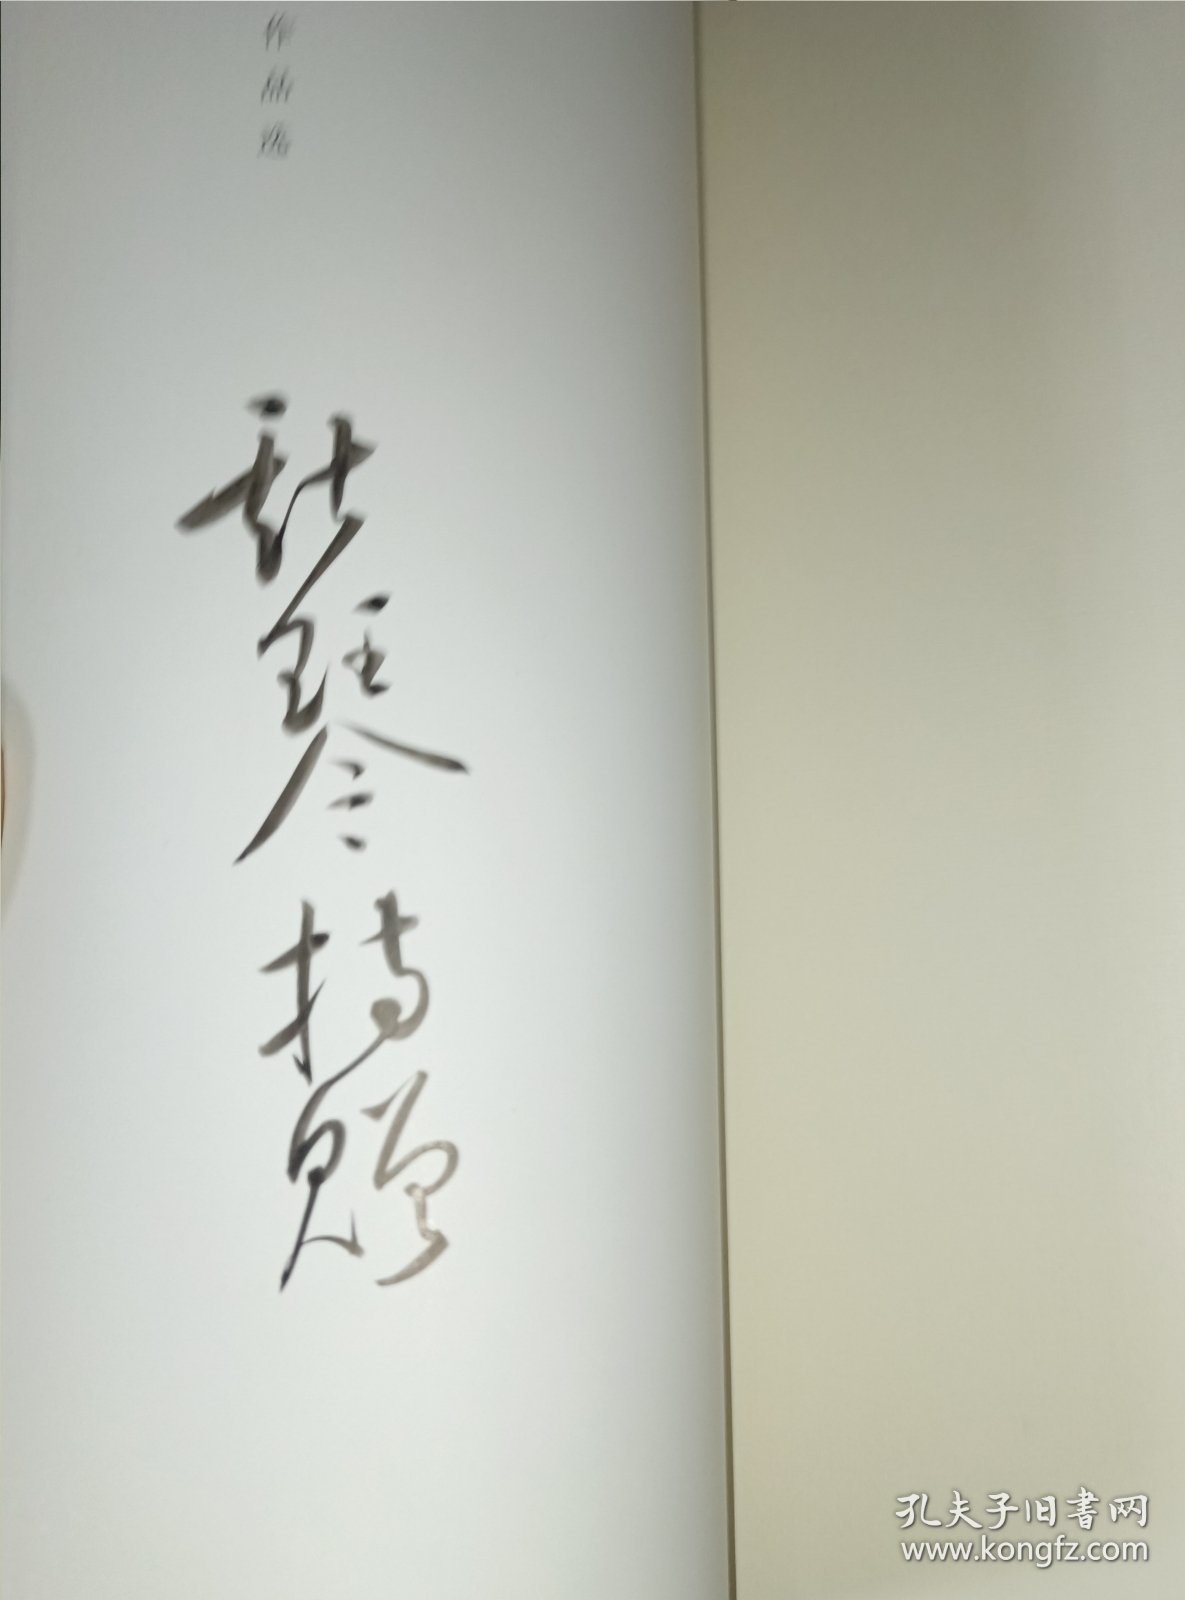 作品选
琴持贈
孔夫子旧書网
www.kongfz.com